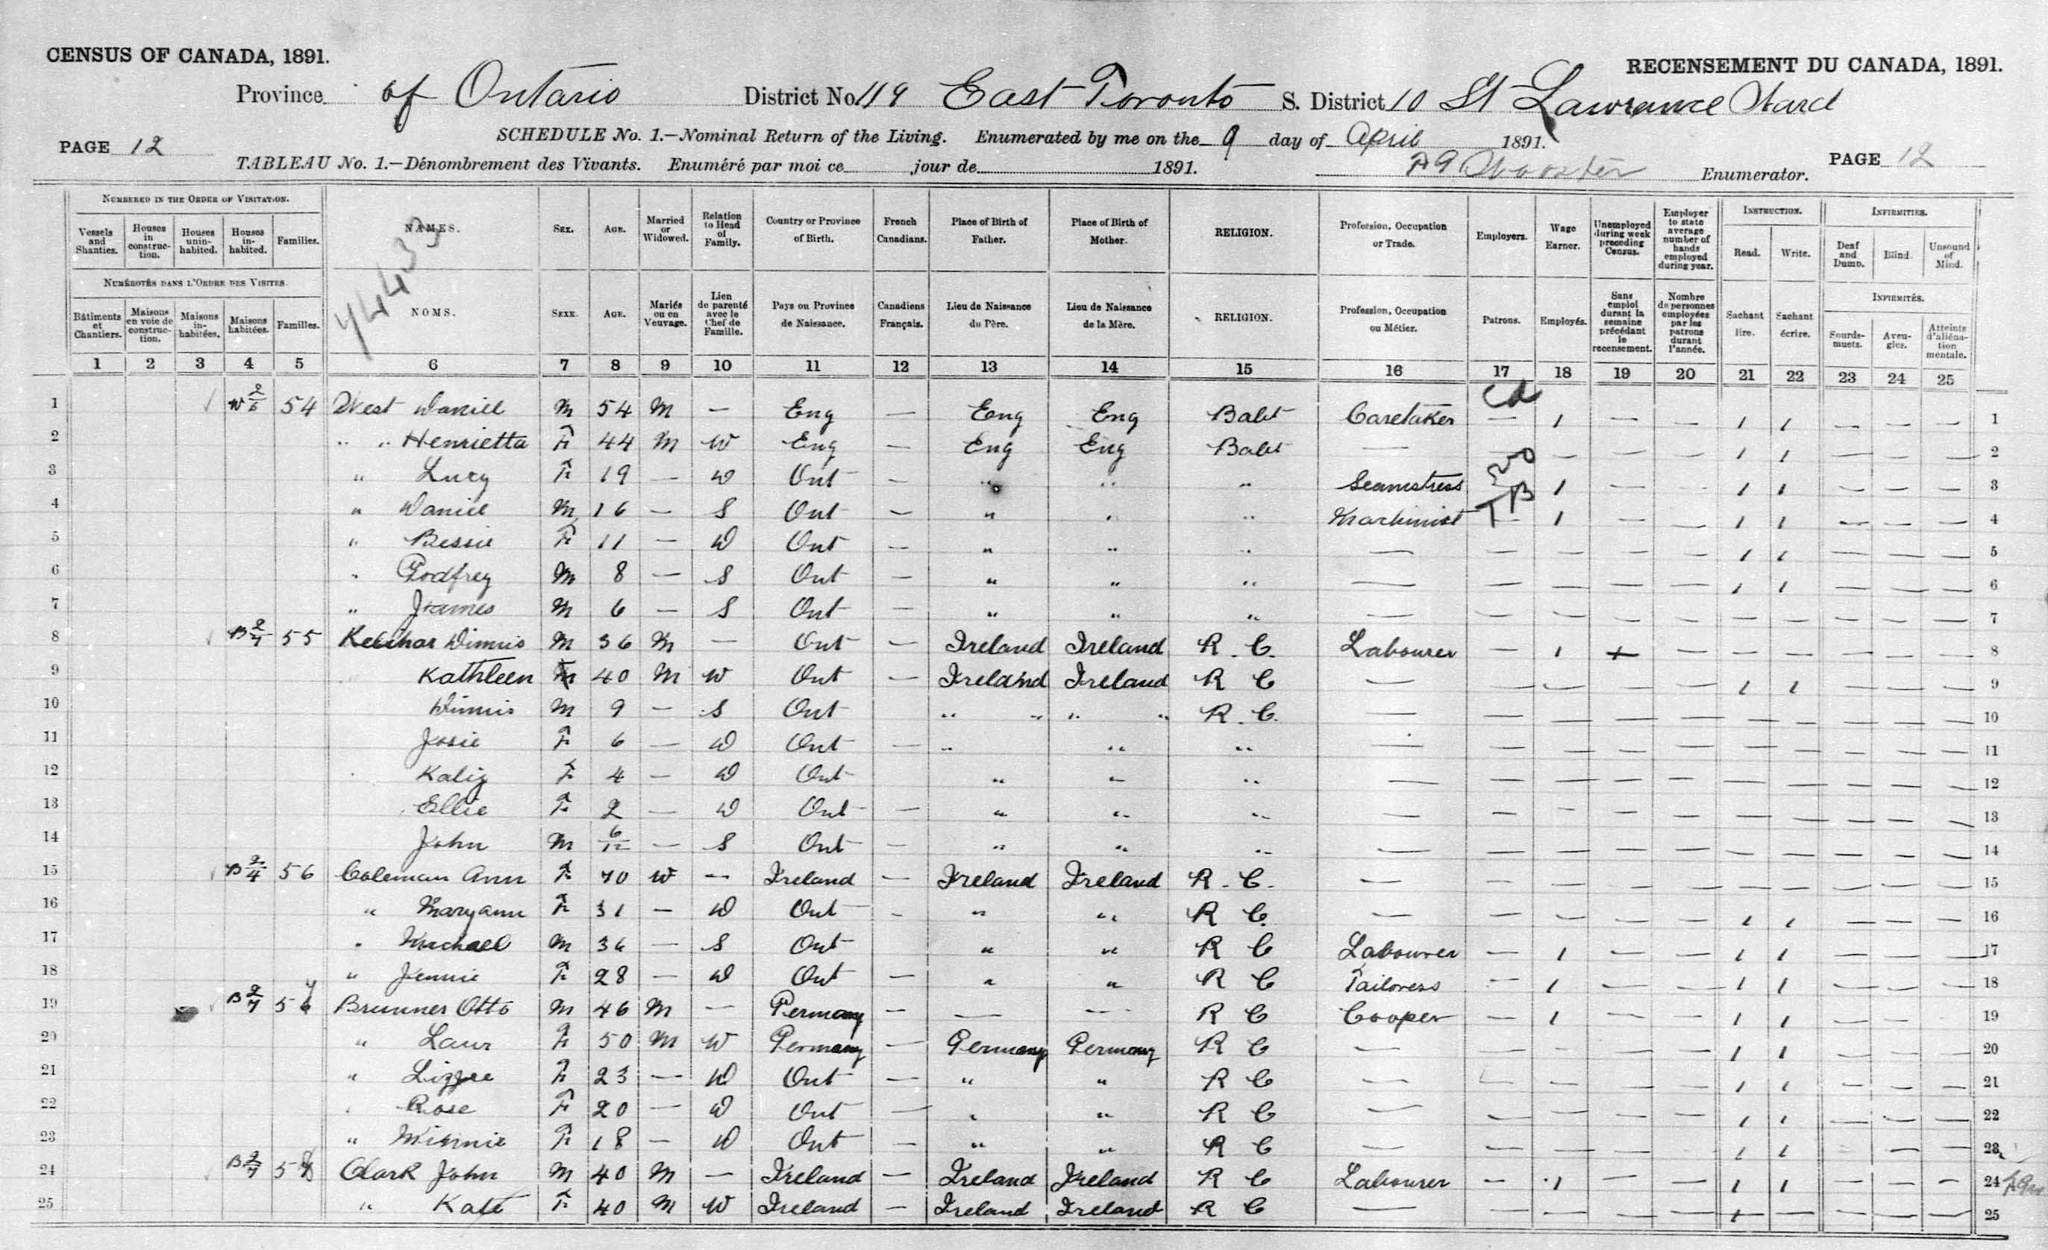 CENSUS OF CANADA, 1891.
RECENSEMENT DU CANADA, 1891.
Province of Ontario District No. 119 East Toronto S. District 10 St Lawrence Ward
SCHEDULE No. 1.—Nominal Return of the Living. Enumerated by me on the 9 day of April 1891.
PAGE 12
TABLEAU No. 1.—Dénombrement des Vivants. Enuméré par moi ce jour de 1891. Enumerator. PAGE 12
NUMBERED IN THE ORDER OF VISITATION. Vessels and Shanties. Houses in construction. Houses uninhabited. Houses inhabited. Families.
NAMES. SEX. AGE. Married or Widowed. Relation to Head of Family. Country or Province of Birth. French Canadians. Place of Birth of Father. Place of Birth of Mother. RELIGION. Profession, Occupation or Trade. Employers. Wage Earner. Unemployed during week preceding Census. Employer to state average number of hands employed during year. INSTRUCTION. Read. Write. INFIRMITIES. Deaf and Dumb. Blind. Unsound of Mind.
NUMÉROTÉS DANS L'ORDRE DES VISITES. Bâtiments et Chantiers. Maisons en voie de construction. Maisons inhabitées. Maisons habitées. Familles.
NOMS. SEXE. AGE. Mariés ou en Veuvage. Lien de parenté avec le Chef de Famille. Pays ou Province de Naissance. Canadiens Français. Lieu de Naissance du Père. Lieu de Naissance de la Mère. RELIGION. Profession, Occupation ou Métier. Patrons. Employés. Sans emploi durant la semaine précédant le recensement. Nombre de personnes employées par les patrons durant l'année. Sachant lire. Sachant écrire. INFIRMITÉS. Sourds-muets. Aveugles. Atteints d'aliénation mentale.
1 2 3 4 5 6 7 8 9 10 11 12 13 14 15 16 17 18 19 20 21 22 23 24 25
1 W 2/6 54 West Daniel M 54 M — Eng — Eng Eng Babt Caretaker — 1 — — 1 1 — — — 1
2 " " Henrietta F 44 M W Eng — Eng Eng Babt — — — — — 1 1 — — — 2
3 " Lucy F 19 — D Ont — " " " Seamstress 1 — — 1 1 — — — 3
4 " Daniel M 16 — S Ont — " " " Machinist — 1 — — 1 1 — — — 4
5 " Bessie F 11 — D Ont — " " " — — — — — 1 1 — — — 5
6 " Godfrey M 8 — S Ont — " " " — — — — — 1 1 — — — 6
7 " James M 6 — S Ont — " " " — — — — — — — — — — 7
8 B 2/7 55 Dinnis M 36 M — Ont — Ireland Ireland R. C. Labourer — 1 + — — — — — — 8
9 Kathleen F 40 M W Ont — Ireland Ireland R C — — — — — 1 1 — — — 9
10 Dinnis M 9 — S Ont — " " " " R. C. — — — — — — — — — — 10
11 Josie F 6 — D Ont — " " " — — — — — — — — — — 11
12 F 4 — D Ont — " " " — — — — — — — — — — 12
13 Ellie F 2 — D Ont — " " " — — — — — — — — — — 13
14 John M 6/12 — S Ont — " " " — — — — — — — — — — 14
15 B 2/4 56 Coleman Ann F 70 W — Ireland — Ireland Ireland R. C. — — — — — — — — — — 15
16 " Maryann F 31 — D Ont — " " R C — — — — — 1 1 — — — 16
17 " Michael M 36 — S Ont — " " R C Labourer — 1 — — 1 1 — — — 17
18 " Jennie F 28 — D Ont — " " R C Tailoress — 1 — — 1 1 — — — 18
19 B 2/7 57 Brunner Otto M 46 M — Germany — — — R C Cooper — 1 — — 1 1 — — — 19
20 " Laur F 50 M W Germany — Germany Germany R C — — — — — 1 1 — — — 20
21 " Lizzie F 23 — D Ont — " " R C — — — — — 1 1 — — — 21
22 " Rose F 20 — D Ont — " " R C — — — — — 1 1 — — — 22
23 " Minnie F 18 — D Ont — " " R C — — — — — 1 1 — — — 23
24 B 2/7 58 Clark John M 40 M — Ireland — Ireland Ireland R C Labourer — 1 — — 1 1 — — — 24
25 " Kate F 40 M W Ireland — Ireland Ireland R C — — — — — 1 — — — — 25